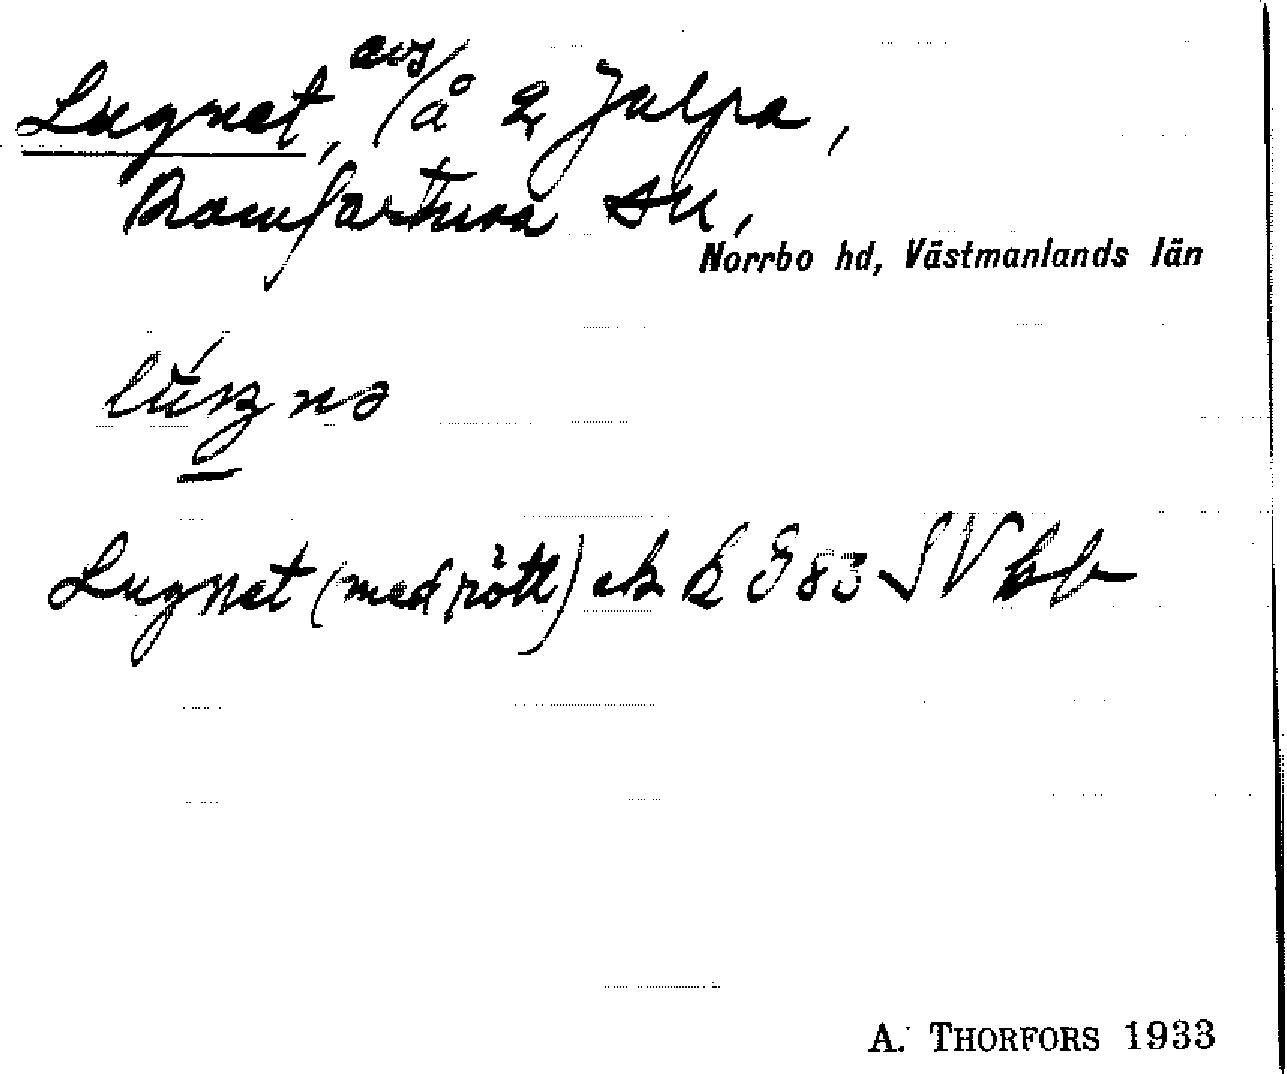 Lugnet, avs/å 2 Julpa,
Romfartuna sn,
Norrbo hd, Västmanlands län
Lugnet (med rött) ek E 983 SV bl
A. THORFORS 1933